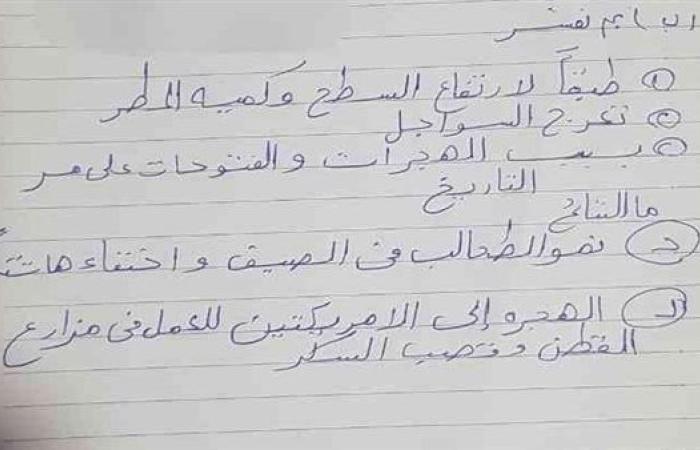 (ب) بم تفسر
① طبقاً لارتفاع السطح وكميه المطر
② تعرج السواحل
③ بسبب الهجرات والفتوحات على مر
التاريخ
ما النتائج
نمو الطحالب فى الصيف واختفاءها شتاً
الهجره إلى الامريكتين للعمل فى مزارع
القطن وقصب السكر